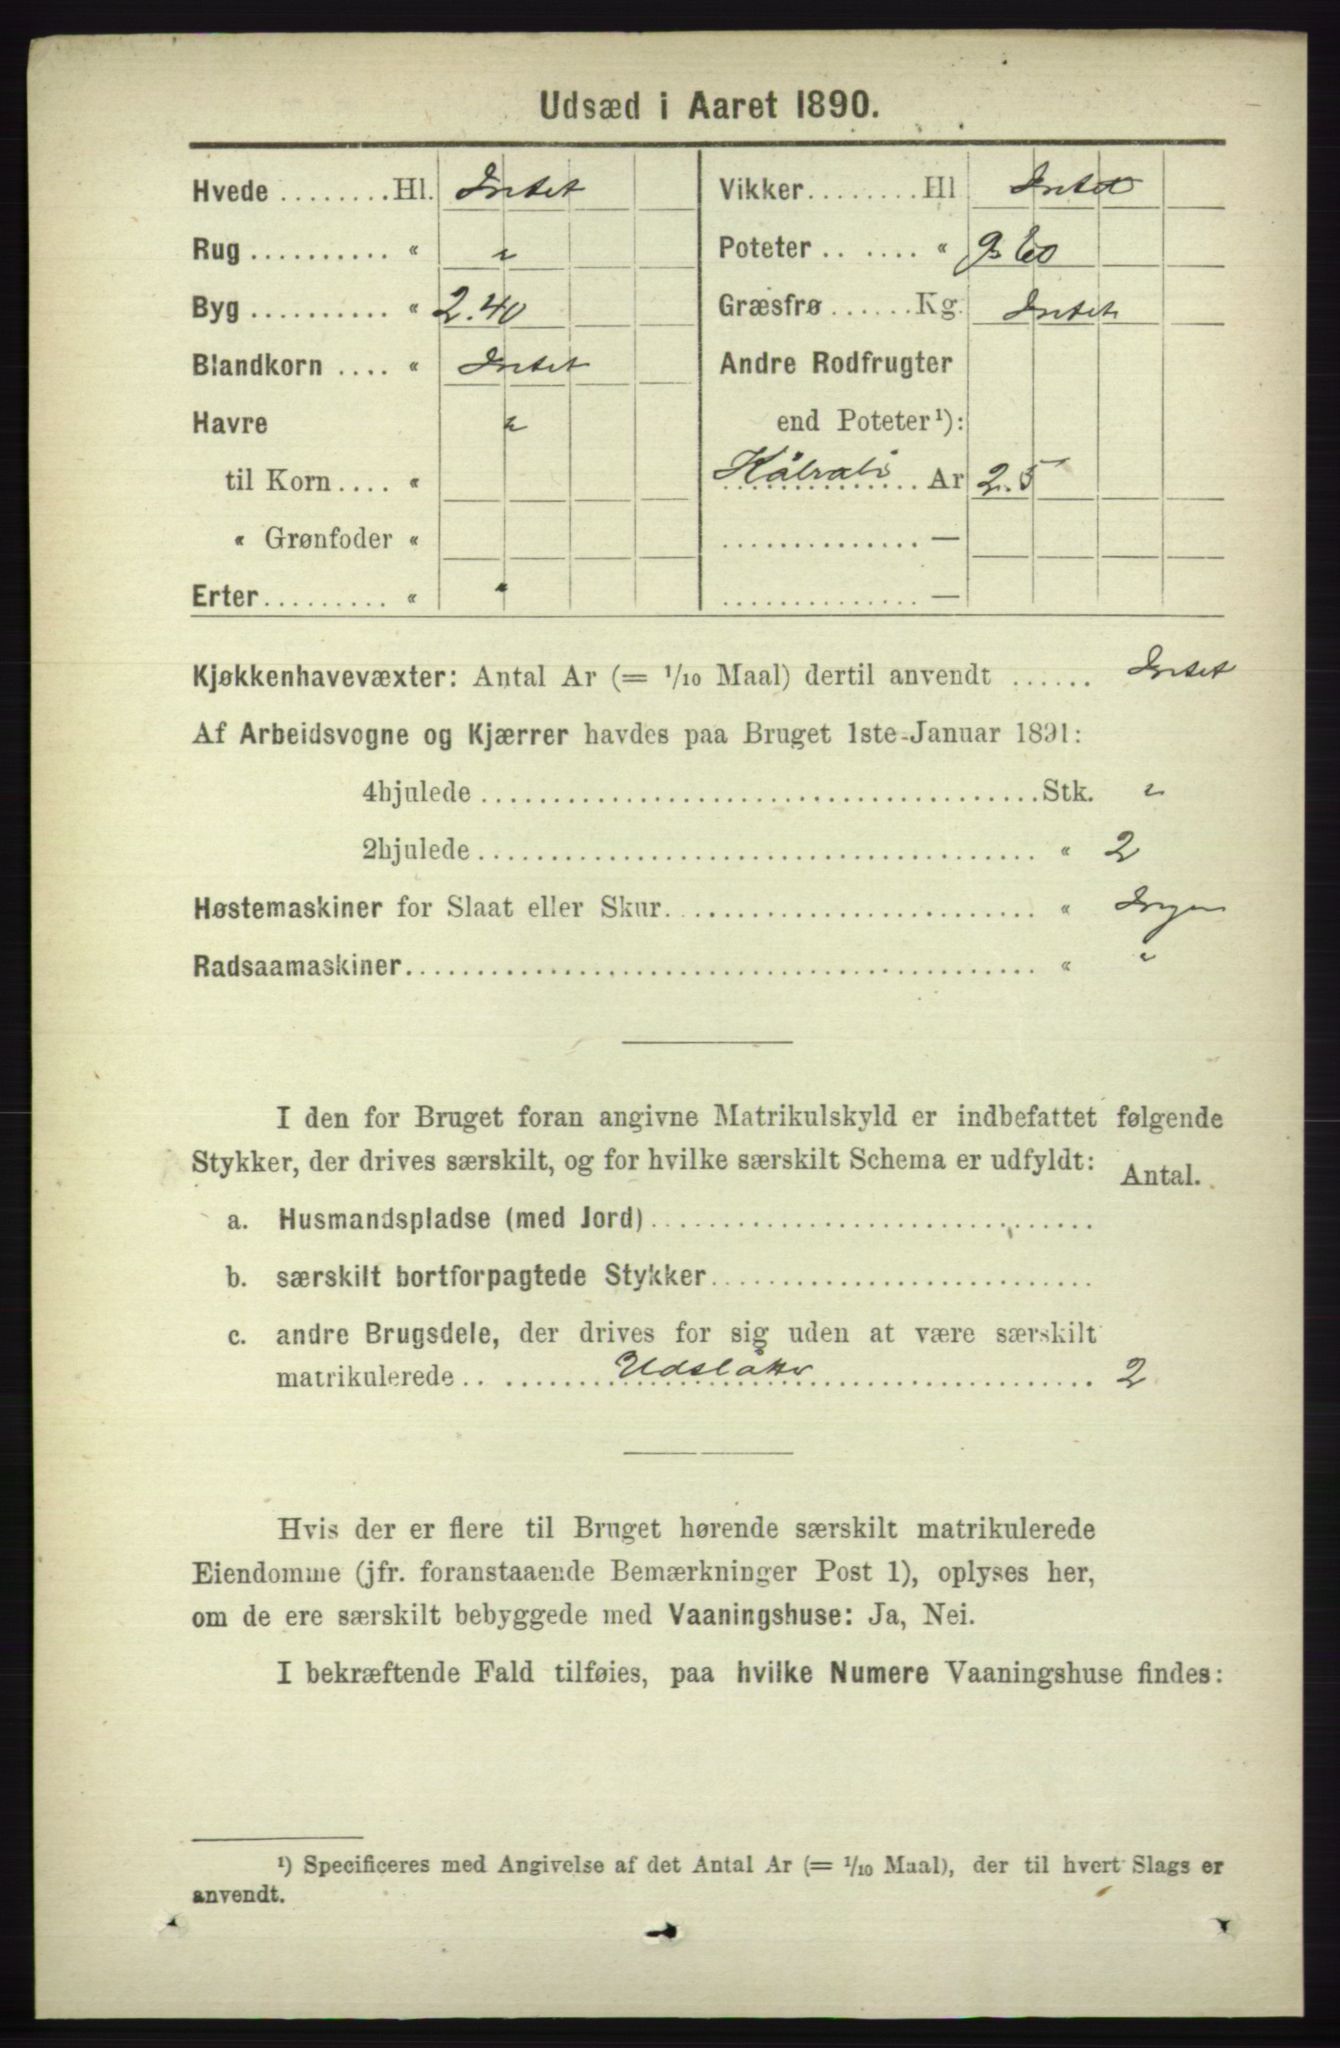 Udsæd i Aaret 1890.
Hvede ........Hl. Intet
Rug .......... " "
Byg .......... " 2.40
Blandkorn .... " Intet
Havre "
til Korn .... "
" Grønfoder "
Erter ......... " "
Vikker ........ Hl Intet
Poteter .. ...... " 9.60
Græsfrø ...... Kg. Intet
Andre Rodfrugter
end Poteter¹):
Kålrabi Ar 2.5
.............. —
.............. —
Kjøkkenhavevæxter: Antal Ar (= 1/10 Maal) dertil anvendt ...... Intet
Af Arbeidsvogne og Kjærrer havdes paa Bruget 1ste Januar 1891:
4hjulede ........ Stk. "
2hjulede ........ " 2
Høstemaskiner for Slaat eller Skur ........ " Ingen
Radsaamaskiner ........ " "
I den for Bruget foran angivne Matrikulskyld er indbefattet følgende
Stykker, der drives særskilt, og for hvilke særskilt Schema er udfyldt: Antal.
a. Husmandspladse (med Jord) ........
b. særskilt bortforpagtede Stykker ........
c. andre Brugsdele, der drives for sig uden at være særskilt
matrikulerede .. Udslåtter ........ 2
Hvis der er flere til Bruget hørende særskilt matrikulerede
Eiendomme (jfr. foranstaaende Bemærkninger Post 1), oplyses her,
om de ere særskilt bebyggede med Vaaningshuse: Ja, Nei.
I bekræftende Fald tilføies, paa hvilke Numere Vaaningshuse findes:
¹) Specificeres med Angivelse af det Antal Ar (= 1/10 Maal), der til hvert Slags er
anvendt.